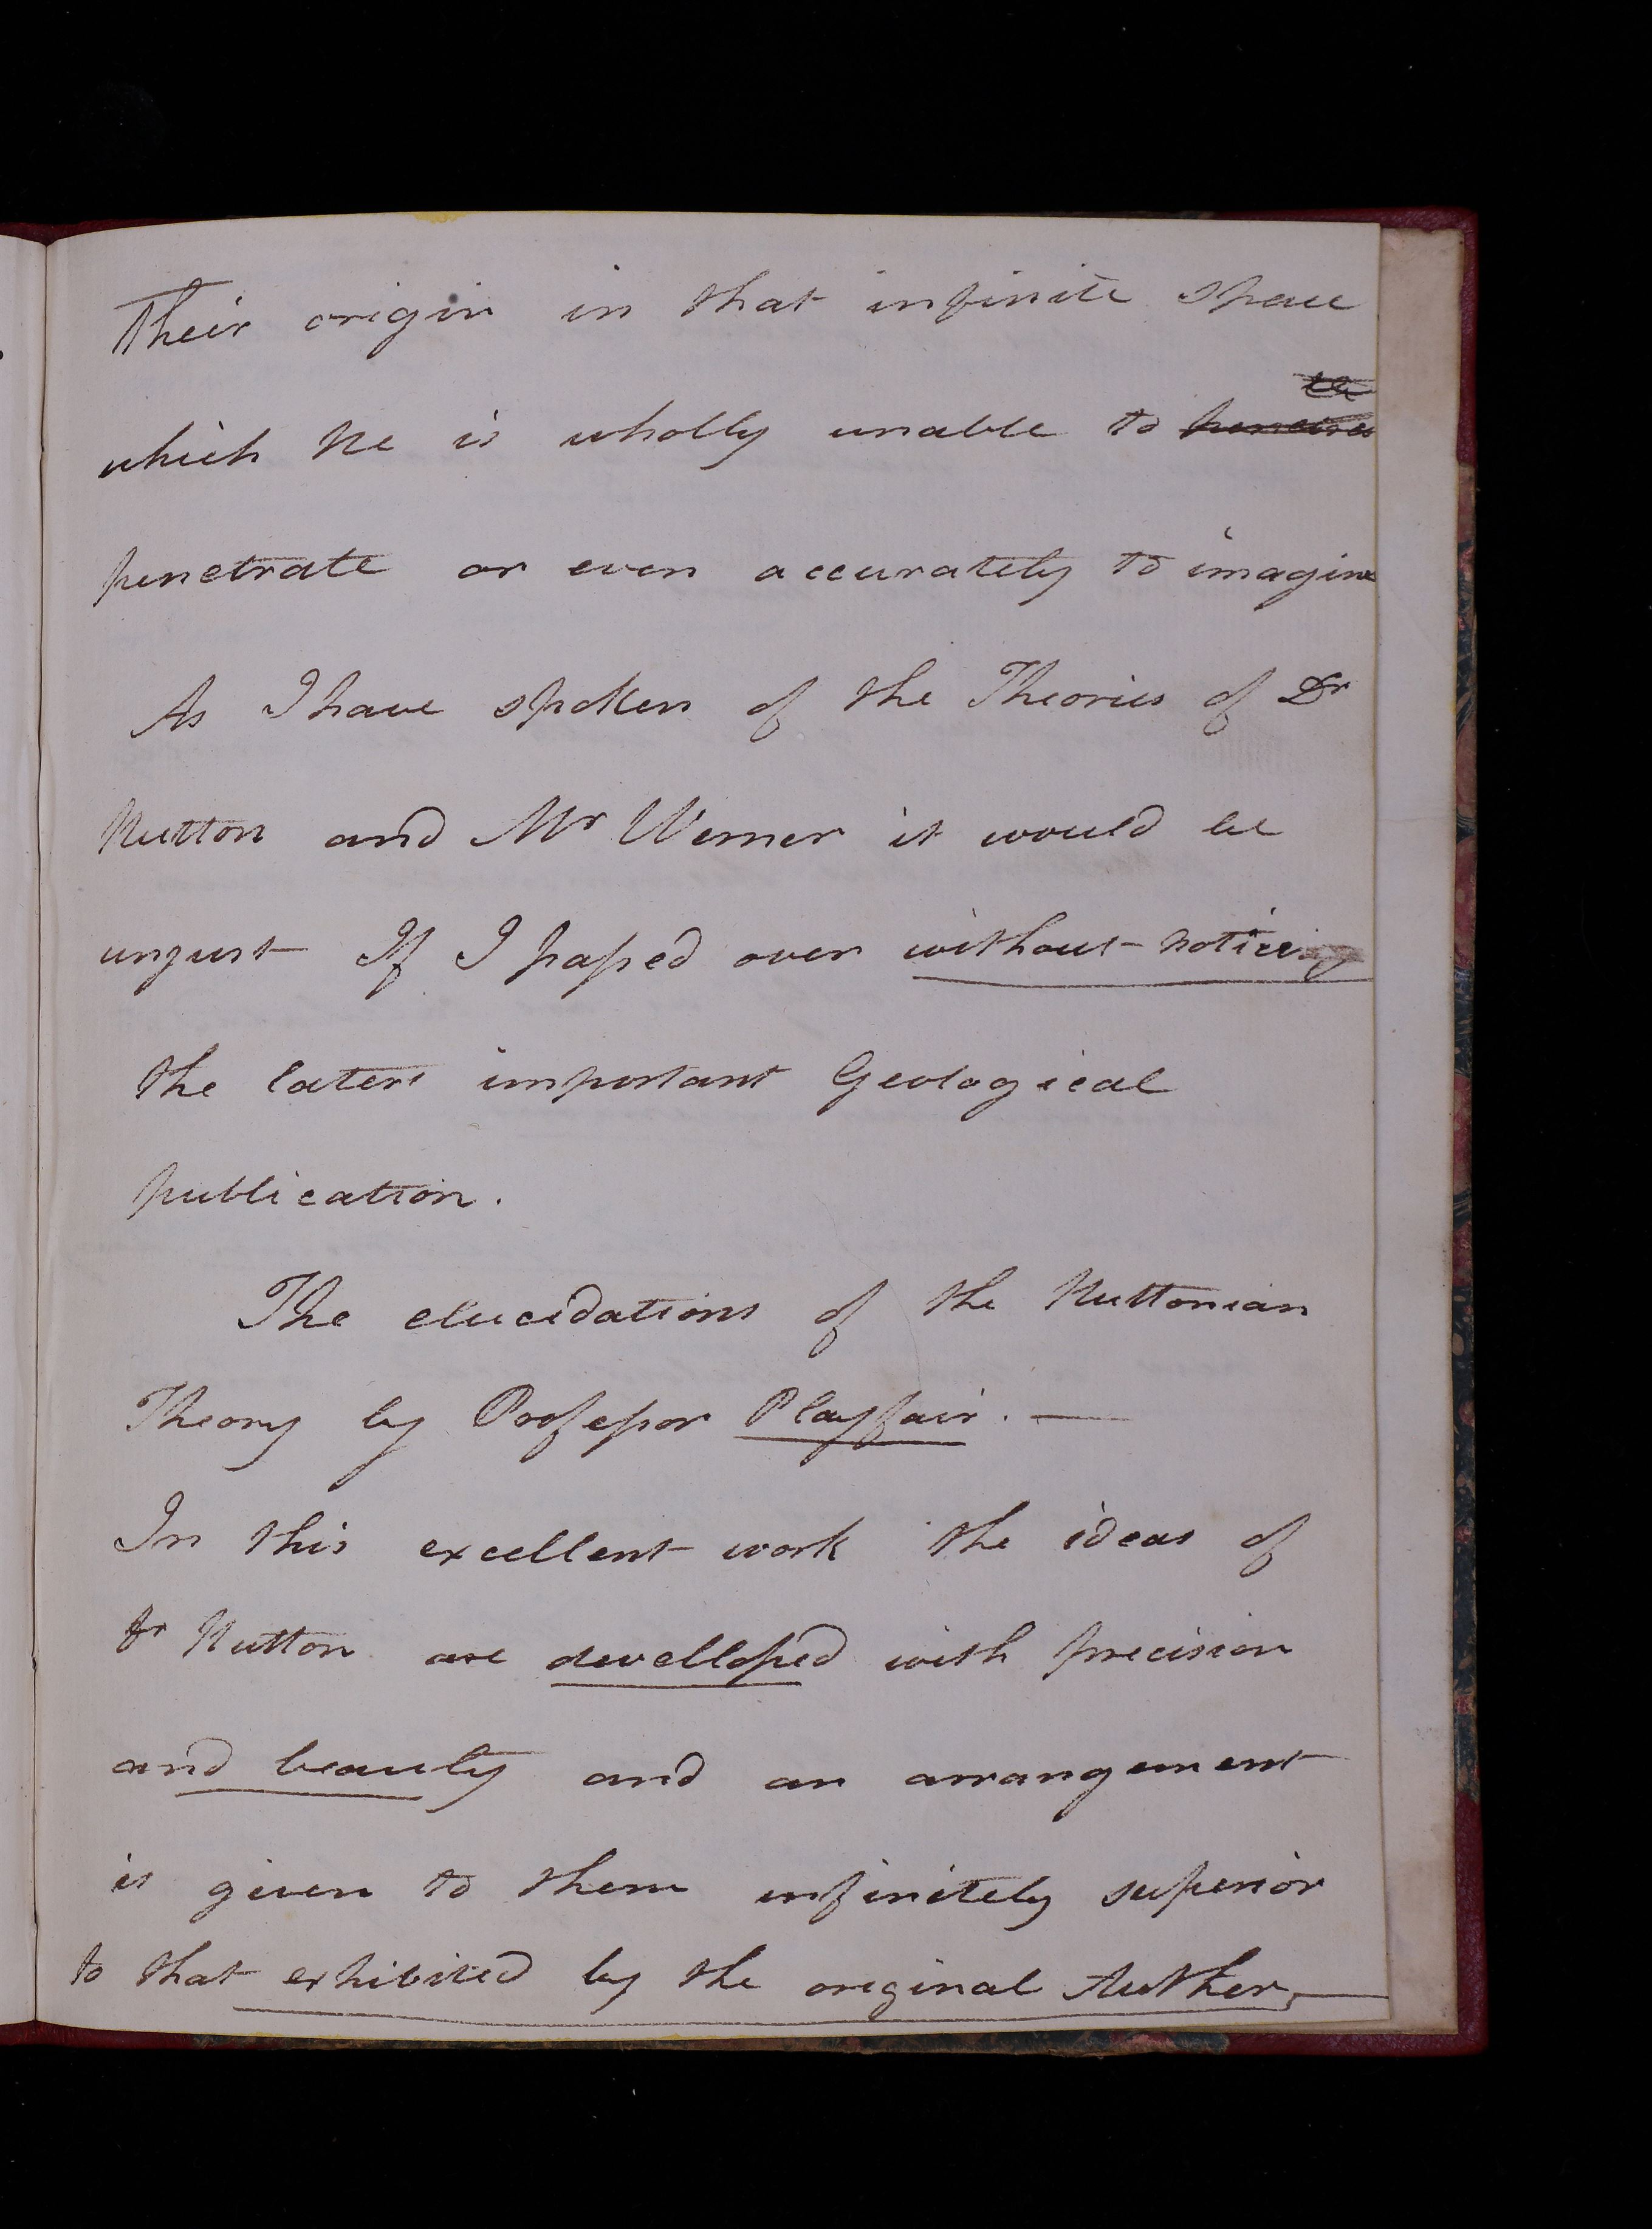 Their origin in that infinite space
which he is wholly unable to
penetrate or even accurately to imagine
As I have spoken of the Theories of Dr
Hutton and Mr Werner it would be
unjust If I passed over without noticing
the latest important Geological
publication.
The elucidations of the Huttonian
Theory by Professor Playfair. —
In this excellent work the ideas of
Dr Hutton are develloped with precision
and beauty and an arrangement
is given to them infinitely superior
to that exhibited by the original Auther, —